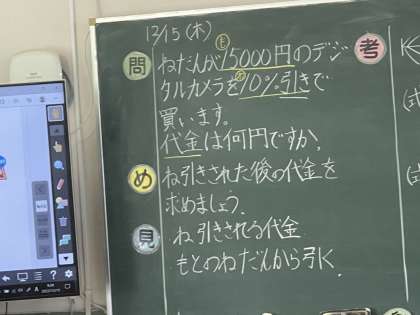 12/15(木)
も
問 ねだんが15000円のデジ
タルカメラを10%引きで
買います。
代金は何円ですか。
め ね引きされた後の代金を
求めましょう。
見 ね引きされる代金
もとのねだんから引く。
考